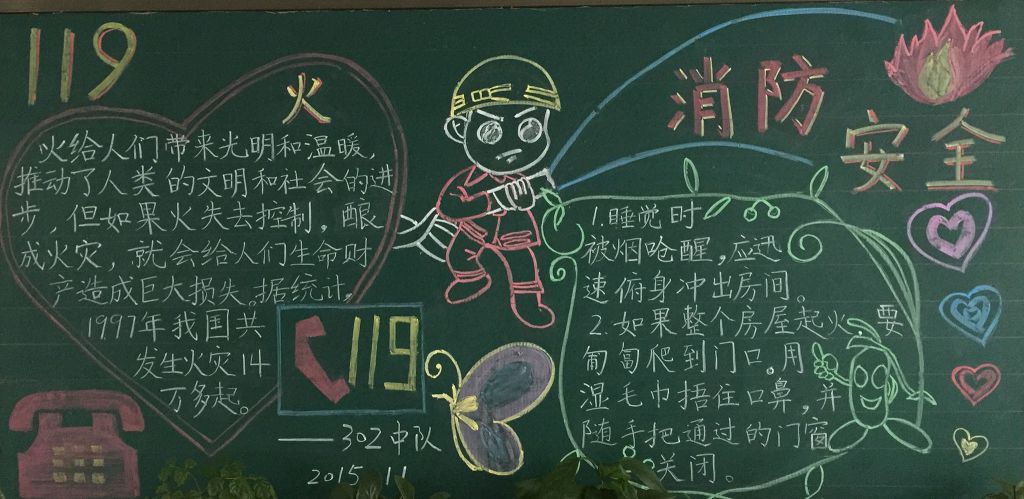 119
火
火给人们带来光明和温暖，
推动了人类的文明和社会的进
步，但如果火失去控制，酿
成火灾，就会给人们生命财
产造成巨大损失。据统计，
1997年我国共
发生火灾14
万多起。
119
——302中队
2015.11
消防
安全
1.睡觉时
被烟呛醒，应迅
速俯身冲出房间。
2.如果整个房屋起火，要
匍匐爬到门口。用
湿毛巾捂住口鼻，并
随手把通过的门窗
关闭。